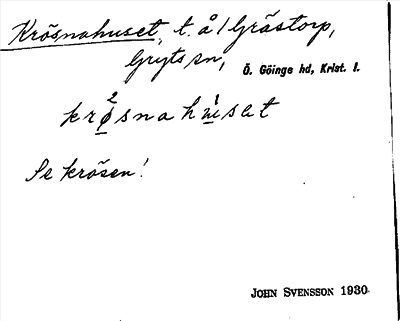 Krösnahuset, t. å 1 Gråstorp,
Gryts sn, Ö. Göinge hd, Krist. l.
Se krösen!
JOHN SVENSSON 1930